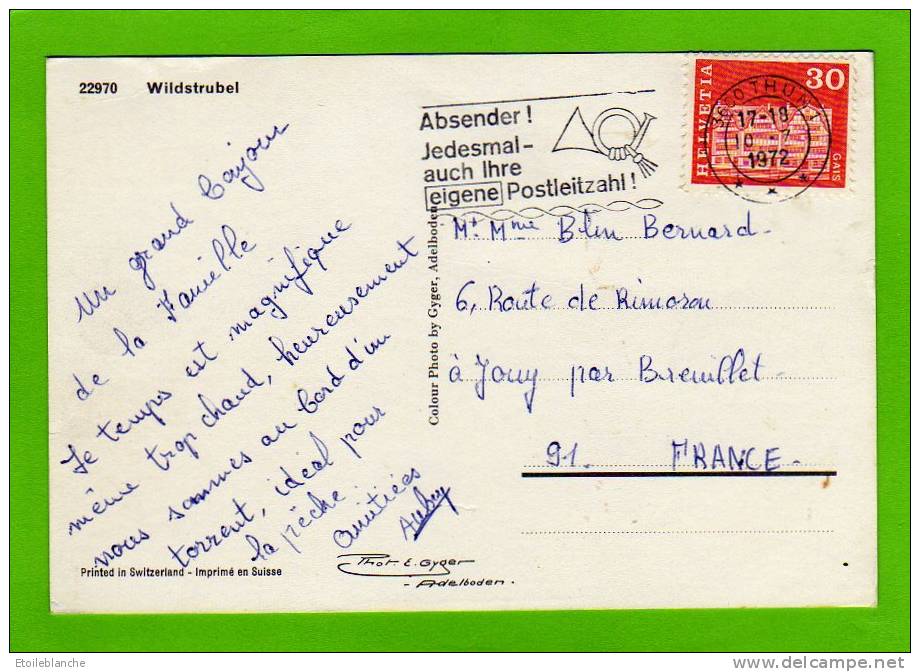 22970 Wildstrubel
Un grand bonjour
de la Famille
Le temps est magnifique
même trop chaud, heureusement
nous sommes au bord d'un
torrent, idéal pour
la pêche.
Amitiées
Aubry
Printed in Switzerland - Imprimé en Suisse
Phot. E. Gyger
- Adelboden.
Colour Photo by Gyger, Adelboden
Absender!
Jedesmal-
auch Ihre
eigene Postleitzahl!
HELVETIA
30
GAIS
3600 THUN 1
17-18
10.-7.
1972
Mr Mme Blin Bernard-
6, Route de Rimoron
à Jouy par Breuillet-
91. FRANCE-
Etoileblanche
www.delcampe.net